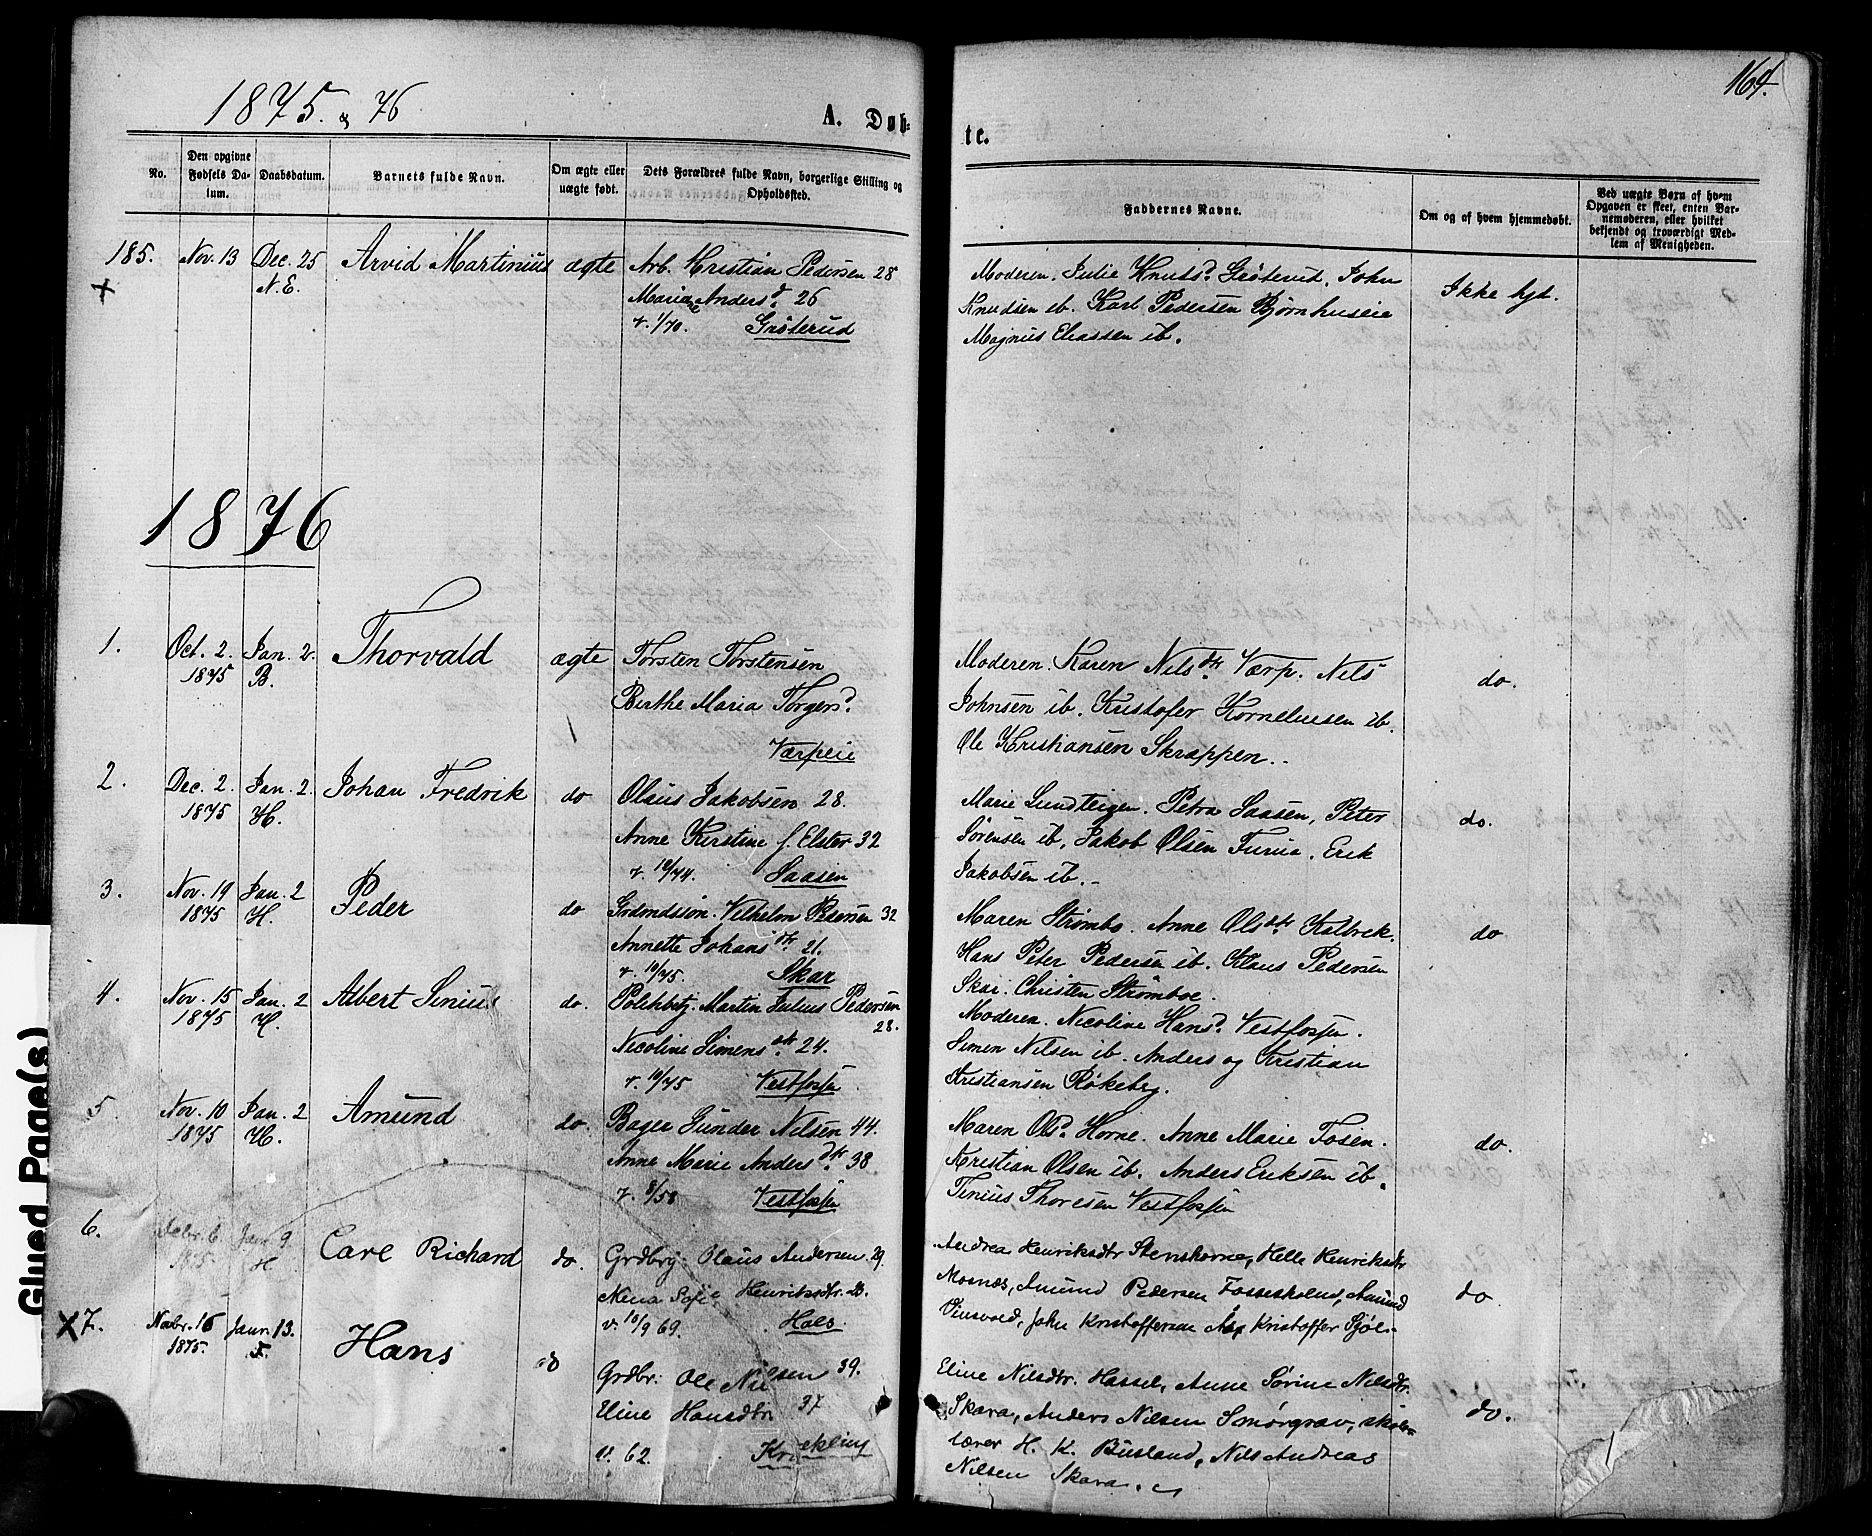 1875. & 76
A. Døb-
te.
164.
No.
Den opgivne Fødsels Da-tum.
Daabsdatum.
Barnets fulde Navn.
Om ægte eller uægte født.
Dets Forældres fulde Navn, borgerlige Stilling og Opholdssted.
Faddernes Navne.
Om og af hvem hjemmedøbt.
Ved uægte Børn af hvem
Opgaven er skeet, enten Bar-
nemoderen, eller hvilket
bekjendt og troværdigt Med-
lem af Menigheden.
185. Nov. 13 Dec. 25 Arvid Martinius ægte Arb. Kristian Pedersen 28
+ N.E. Maria Andersd. 26
v. 1/70. Grøterud
Moderen. Julie Knutsd. Grøterud. John
Knudsen ib. Karl Pedersen Bjørnhuseie
Magnus Eliassen ib.
Ikke hjd.
1876
1. Oct. 2. Jan. 2. Thorvald ægte Torsten Torstensen
1875 B. Berthe Maria Torgersd.
Værpeie
Moderen. Karen Nilsdtr. Værp. Nils
Johnsen ib. Kristofer Korneliusen ib.
Ole Kristiansen Skrappen.
do.
2. Dec. 2. Jan. 2. Johan Fredrik do Olaus Jakobsen 28.
1875 H. Anne Kirstine f. Elster 32
v. 10/74. Saasen
Marie Lundteigen. Petra Saasen, Peter
Sørensen ib, Jakob Olsen Furua. Erik
Jakobsen ib.
do.
3. Nov. 19 Jan. 2 Peder do Grdmdssøn. Vilhelm Pedersen 32
1875 H. Annette Johansdtr. 21.
v. 10/75. Skar
Maren Strømbo. Anne Olsdtr. Kalbrek.
Hans Peter Pedersen ib. Klaus Pedersen
Skar. Christen Strømboe.
do
4. Nov. 15 Jan. 2 Albert Sinius do. Politibtj. Martin Julius Pedersen
28.
1875 H. Nicoline Simensdtr. 24.
v. 10/75 Vestfossen
Moderen. Nicoline Hansd. Vestfossen.
Simen Nilsen ib. Anders og Kristian
Kristiansen Røkeberg.
5. Nov. 10 Jan. 2 Amund do. Bager Gunder Nilsen 44.
1875 H. Anne Marie Andersdtr. 38
v. 8/58 Vestfossen
Maren Olsd. Horne. Anne Marie Fosen.
Kristian Olsen ib. Anders Eriksen ib.
Tinius Thoresen Vestfossen
do.
6. Debr. 6 Janr 9 Carl Richard do. Grdbrg. Olaus Andersen 29.
1875. H Mina Sofie Henriksdtr. 23.
v. 10/9 69. Hals.
Andrea Henriksdtr Stenshorne, Helle Henriksdtr
Moenæs, Amund Pedersen Fossesholm, Amund
Vinsvold, John Kristoffersen Kristoffer
do
x 7. Novbr. 16 Janr. 13. Hans do Grdbr: Ole Nilsen 39.
1875. F. Eline Hansdtr 37
v. 62. Krekling
Eline Nilsdtr. Hassel, Anne Sørine Nilsdtr.
Skara, Anders Nilsen Smørgrav, skole-
lærer H. K. Busland, Nils Andreas
Nilsen Skara.
do.
Glued Page(s)